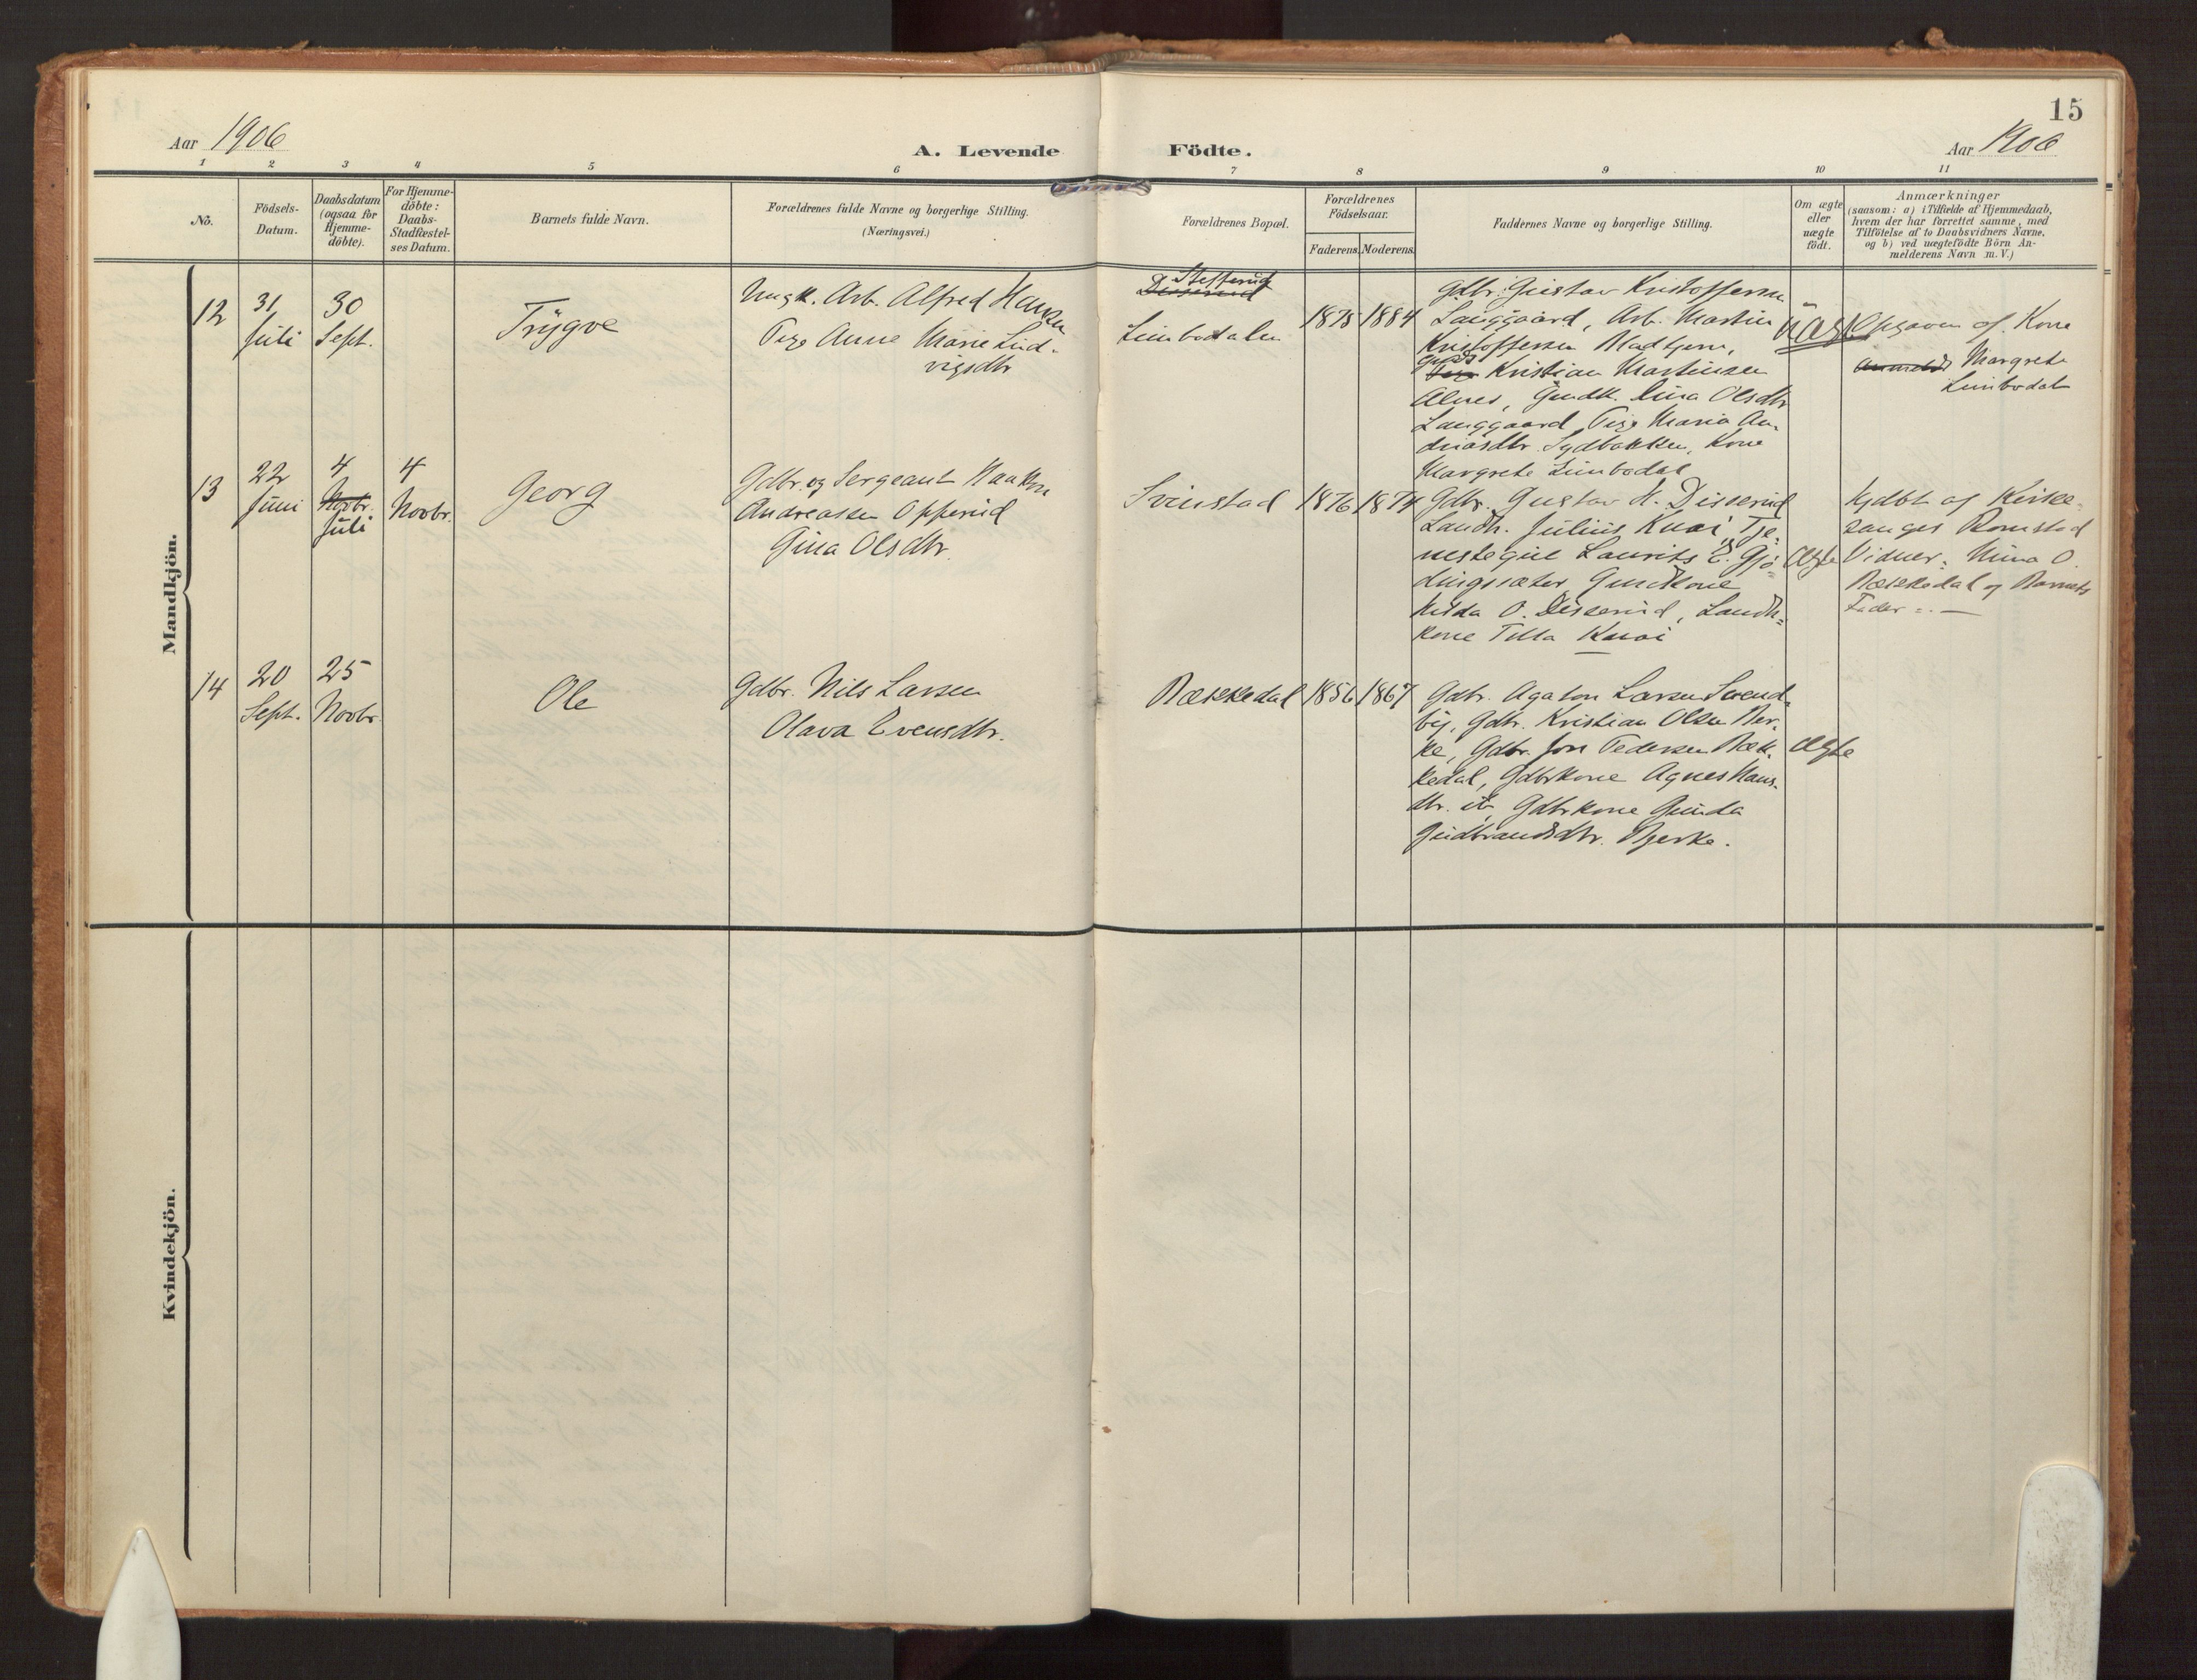 15
Aar 1906
A. Levende Födte.
Aar 1906
1 2 3 4 5 6 7 8 9 10 11
No.
Födsels-
Datum.
Daabsdatum
(ogsaa for
Hjemme-
döbte).
For Hjemme-
döbte:
Daabs-
Stadfæstel-
ses Datum.
Barnets fulde Navn.
Forældrenes fulde Navne og borgerlige Stilling.
(Næringsvei.)
Forældrenes Bopæl.
Forældrenes
Födselsaar.
Faderens. Moderens.
Faddernes Navne og borgerlige Stilling.
Om ægte
eller
uægte
födt.
Anmærkninger
(saasom: a) i Tilfælde af Hjemmedaab,
hvem der har forrettet samme, med
Tilföielse af to Daabsvidners Navne,
og b) ved uægtefödte Börn An-
melderens Navn m. V.)
Mandkjön.
12
31
Juli
30
Sept.
Trygve
Ungk. Arb. Alfred Hansen
Pige Anne Marie Lud-
vigsdtr
Stefferud
Disserud
Linbodalen
1878 1884
Gdbr. Gustav Kristoffersen
Langgaard, Arb. Martin
Kristoffersen
Kristian Martinsen
Alnes, Gmdk. Dina Olsdtr
Langgaard, Pige Maria An-
dreasdtr. Sydbakken, Kone
Margrete Linbodal
uægte
Opgaven af Kone
Anmeldt Margrete
Linbodal
13
22
Juni
4
Novbr.
Juli
4
Novbr.
Georg
Gdbr. og Sergeant Haakon
Andreassen Opperud
Gina Olsdtr.
Svenstad
1876 1874
Gdbr. Gustav H. Disserud
Landh. Julius Knai, Tje-
nestegut Laurits E. Gjö-
dingsæter, Gmdkone
Hilda O. Disserud, Landh-
kone Tilla Knai
Ægte
hjdbt af Kirke-
sanger Ramstad
Vidner: Nina O.
Bækkedal og Barnets
Fader
14
20
Sept.
25
Novbr.
Ole
Gdbr. Nils Larsen
Olava Evensdtr.
Bækkedal
1856 1867
Gdbr. Agaton Larsen Svend-
by, Gdbr. Kristian Olsen Ber-
ke, Gdbr. Jon Pedersen Bæk-
kedal, Gdbrkone Agnes Hans-
dtr. ib, Gdbrkone Gunda
Gudbrandsdtr. Bjerke.
Ægte
Kvindekjön.